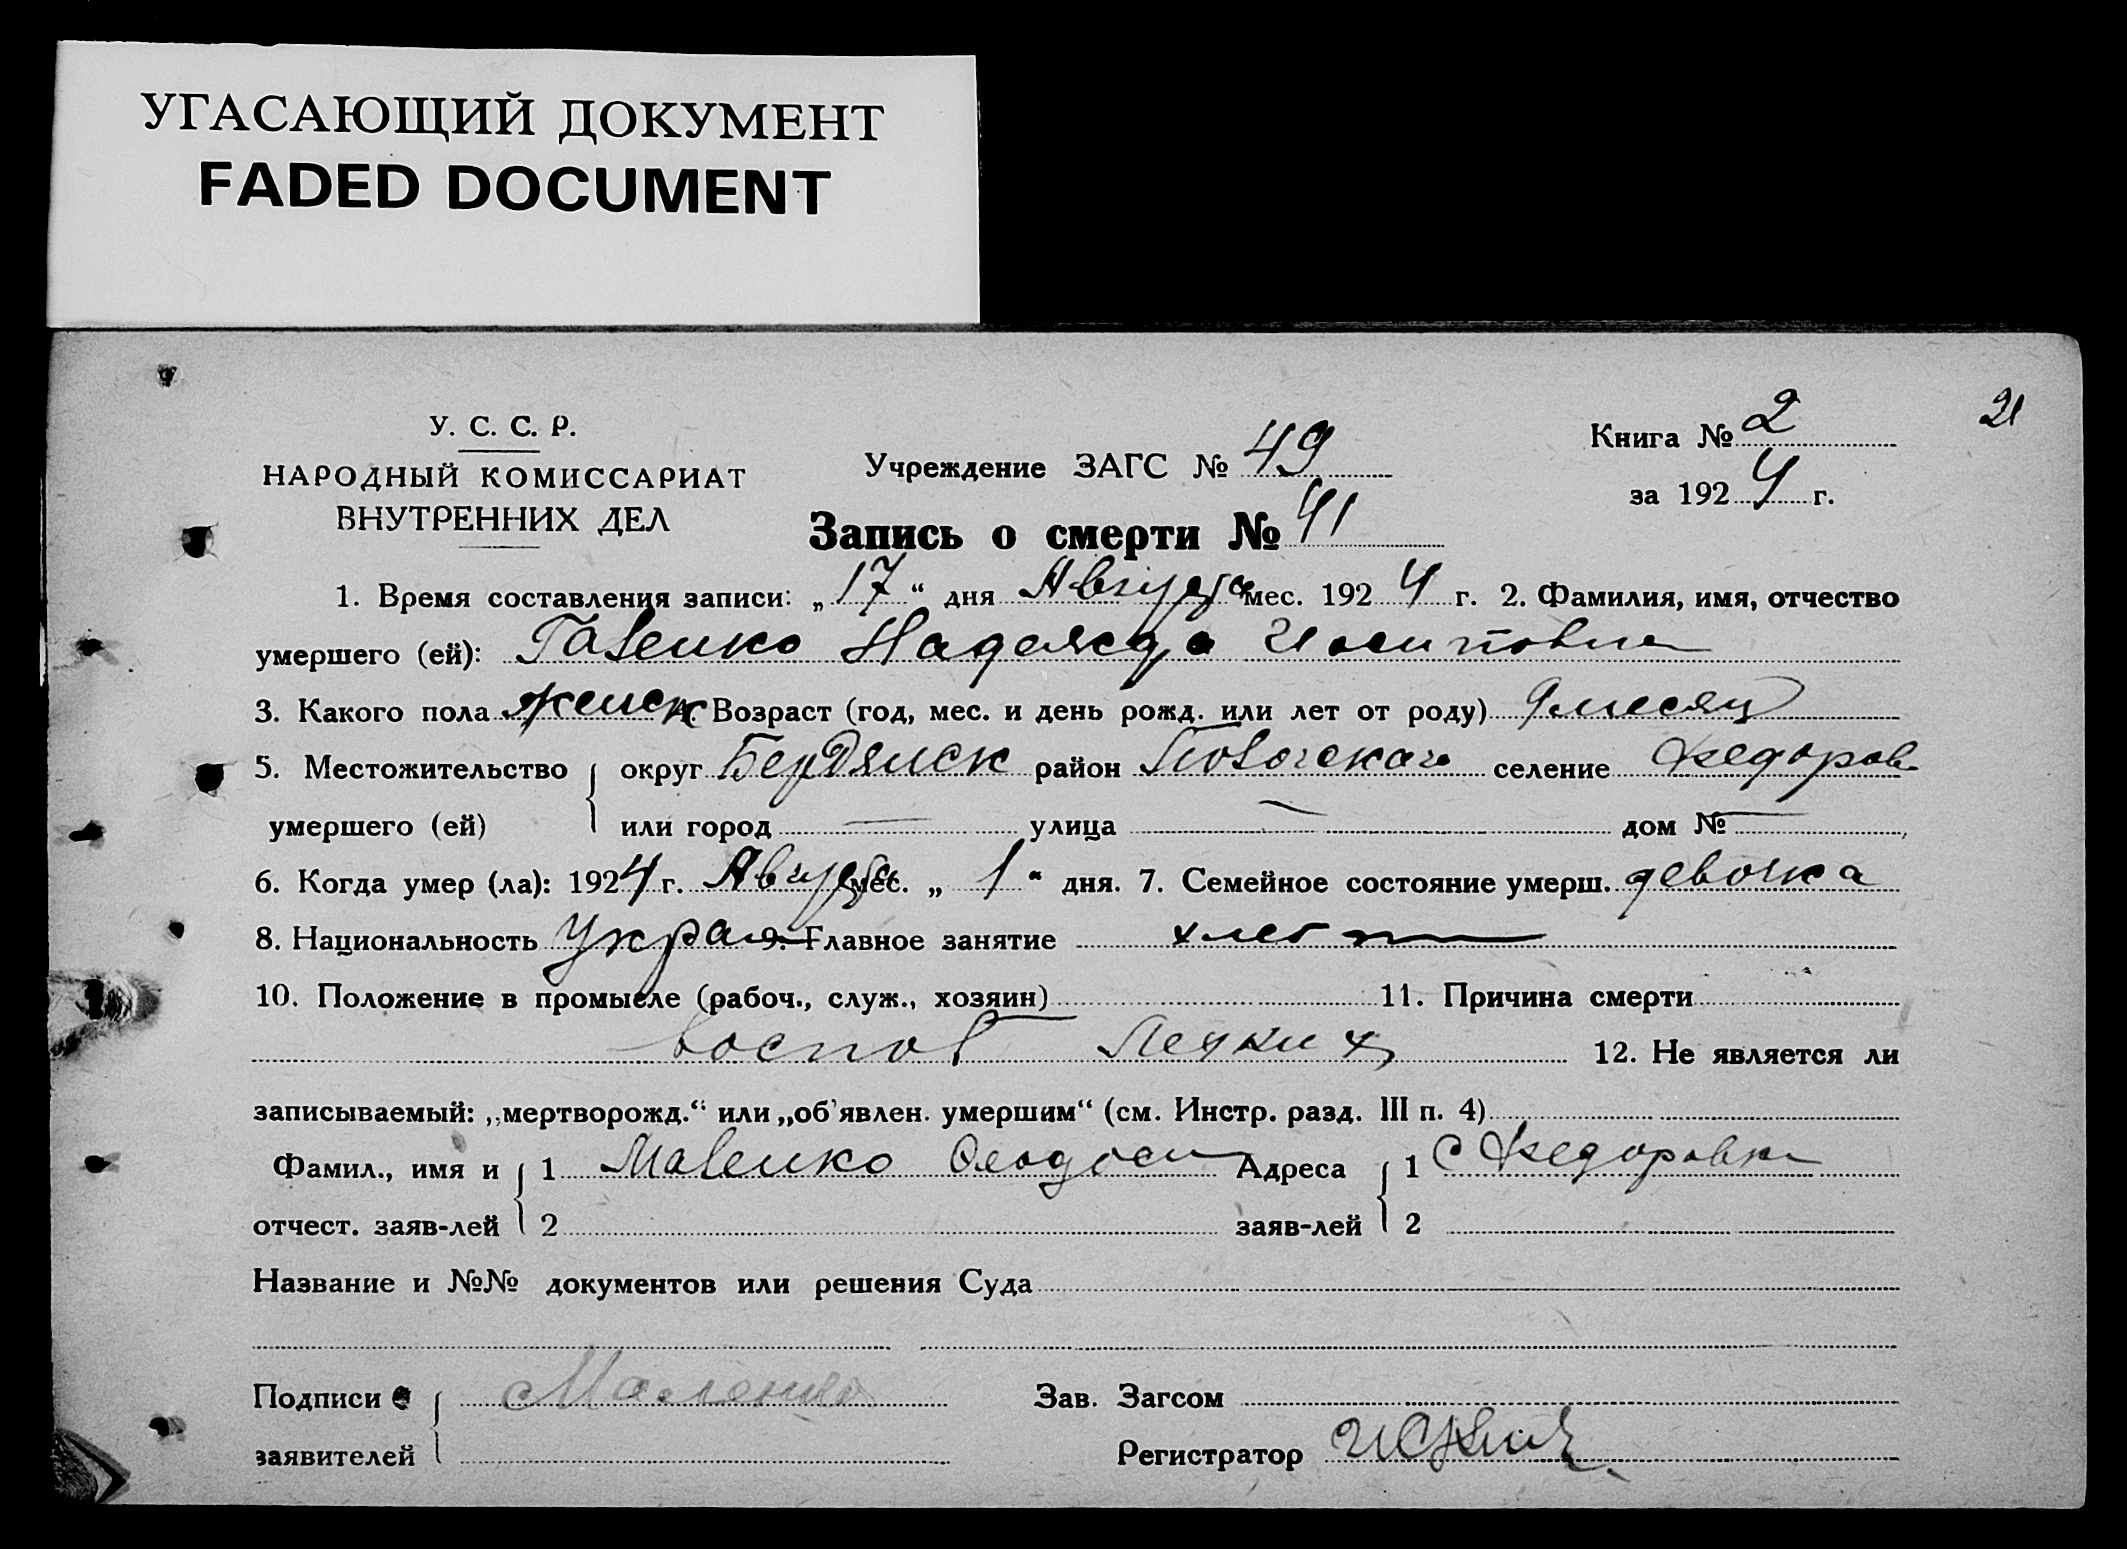 УГАСАЮЩИЙ ДОКУМЕНТ
FADED DOCUMENT
У. С. С. Р.
НАРОДНЫЙ КОМИССАРИАТ
ВНУТРЕННИХ ДЕЛ
Учреждение ЗАГС № 49
Книга № 2
21
за 1924 г.
Запись о смерти № 41
1. Время составления записи: „17“ дня Августа мес. 1924 г. 2. Фамилия, имя, отчество
умершего (ей): Надежда Иосиповна
3. Какого пола женск 4. Возраст (год, мес. и день рожд. или лет от роду) 9 месяц
5. Местожительство округ Бердянск район селение Федоровк
умершего (ей) или город — улица — дом № —
6. Когда умер (ла): 1924 г. Августа мес. „1“ дня. 7. Семейное состояние умерш. девочка
8. Национальность Укра 9. Главное занятие хлеб
10. Положение в промысле (рабоч., служ., хозяин) 11. Причина смерти
воспол Легких 12. Не является ли
записываемый: „мертворожд.“ или „об'явлен. умершим“ (см. Инстр. разд. III п. 4)
Фамил., имя и 1 Адреса 1 с Федоровка
отчест. заяв-лей 2 заяв-лей 2
Название и №№ документов или решения Суда
Подписи Зав. Загсом
заявителей Регистратор